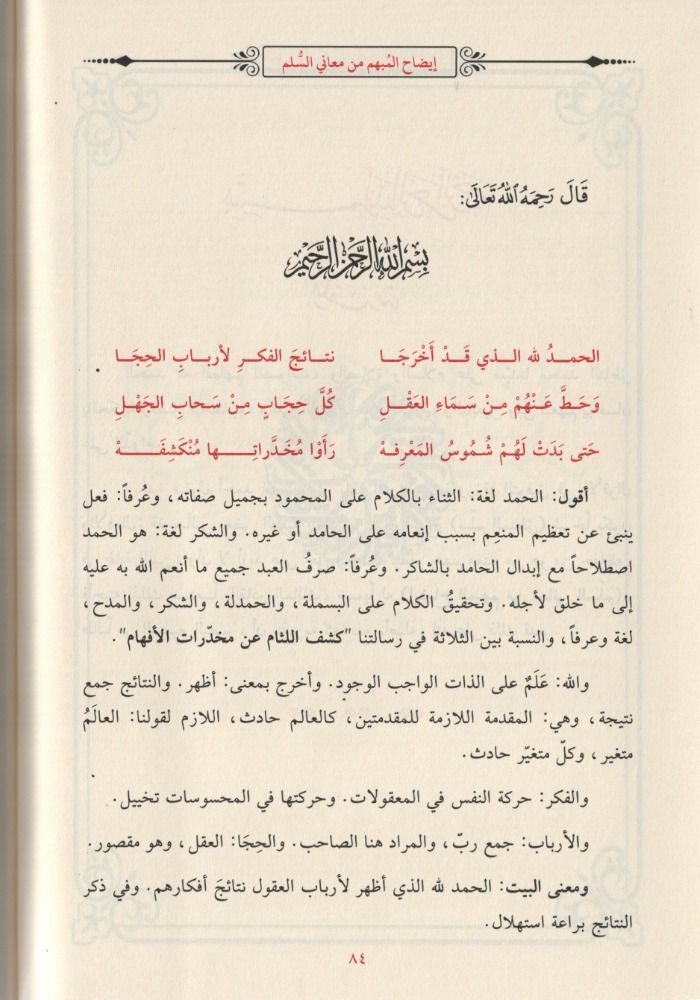 إيضاح المُبهم من معاني السُّلم
قَالَ رَحِمَهُ اللهُ تَعَالَىٰ:
بِسْمِ اللهِ الرَّحْمٰنِ الرَّحِيْمِ
الحمدُ لله الـذي قَـدْ أَخْرَجَـا نتـائجَ الفكـرِ لأربـابِ الحِجَـا
وَحَـطَّ عَـنْهُمْ مِـنْ سَـمَاءِ العَقْـلِ كُلَّ حِجَـابٍ مِـنْ سَـحابِ الجَهْـلِ
حَتى بَدَتْ لَهُمْ شُمُوسُ المَعْرِفهْ رَأَوْا مُخَدَّراتِـها مُنْكَشِفَـهْ
أقول: الحمد لغة: الثناء بالكلام على المحمود بجميل صفاته، وعُرفاً: فعل
ينبئ عن تعظيم المنعِم بسبب إنعامه على الحامد أو غيره. والشكر لغة: هو الحمد
اصطلاحاً مع إبدال الحامد بالشاكر. وعُرفاً: صرفُ العبد جميع ما أنعم الله به عليه
إلى ما خلق لأجله. وتحقيقُ الكلام على البسملة، والحمدلة، والشكر، والمدح،
لغة وعرفاً، والنسبة بين الثلاثة في رسالتنا "كشف اللثام عن مخدّرات الأفهام".
والله: عَلَمٌ على الذات الواجب الوجود. وأخرج بمعنى: أظهر. والنتائج جمع
نتيجة، وهي: المقدمة اللازمة للمقدمتين، كالعالم حادث، اللازم لقولنا: العالَمُ
متغير، وكلّ متغيّر حادث.
والفكر: حركة النفس في المعقولات. وحركتها في المحسوسات تخييل.
والأرباب: جمع ربّ، والمراد هنا الصاحب. والحِجَا: العقل، وهو مقصور.
ومعنى البيت: الحمد لله الذي أظهر لأرباب العقول نتائجَ أفكارهم. وفي ذكر
النتائج براعة استهلال.
٨٤